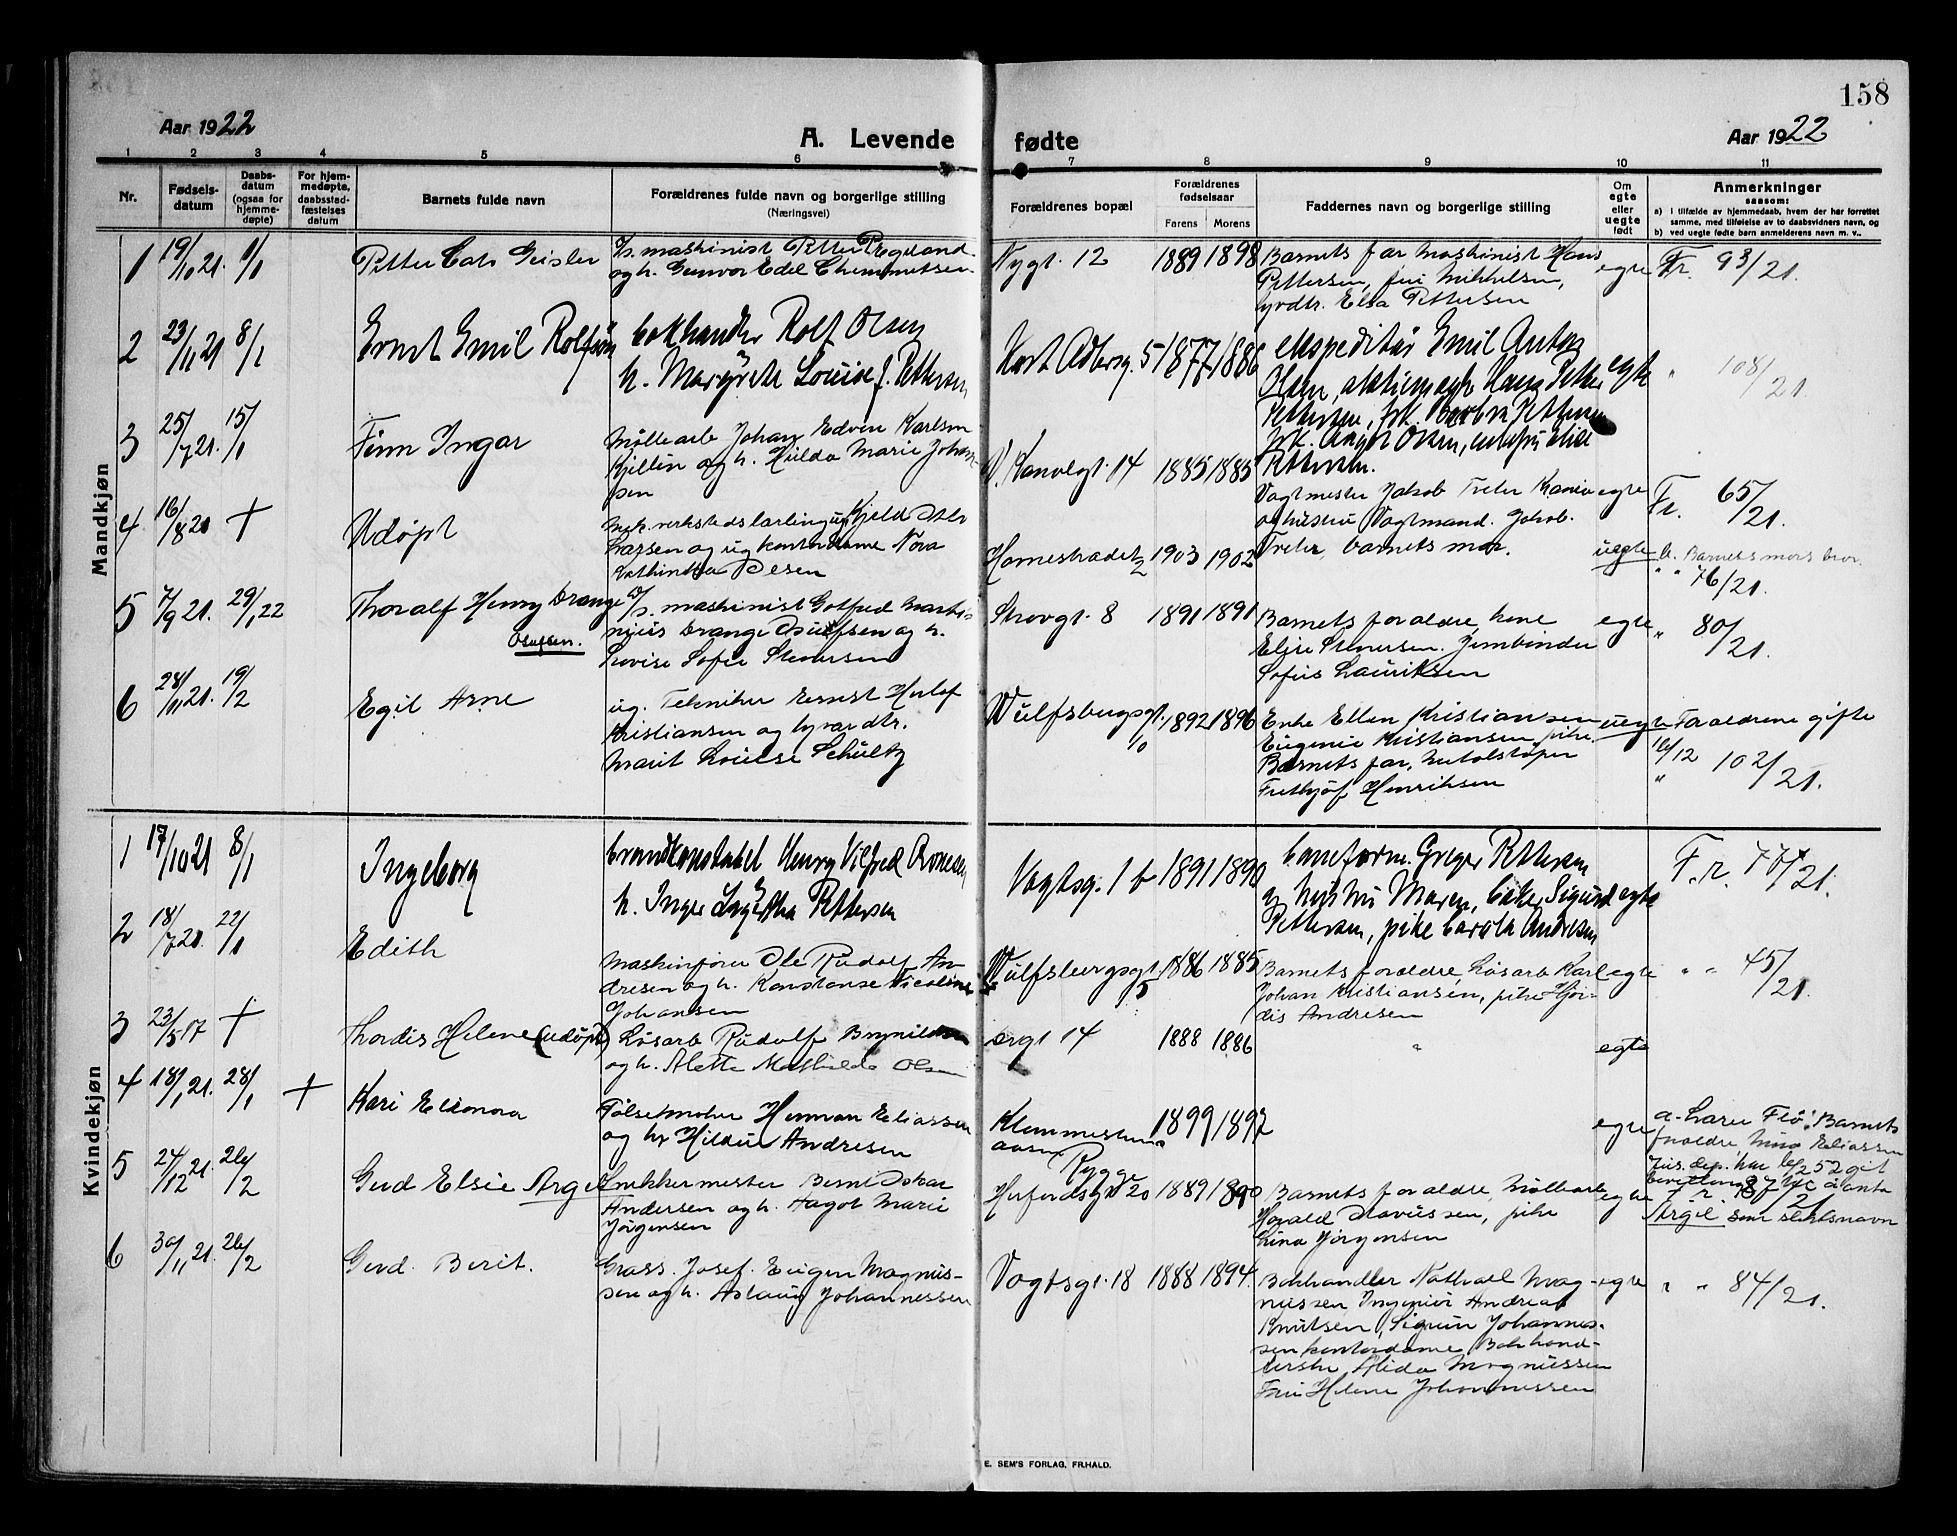 158
Aar 1922
A. Levende fødte
Aar 1922
1 2 3 4 5 6 7 8 9 10 11
Nr.
Fødsels-
datum
Daabs-
datum
(ogsaa for
hjemme-
døpte)
For hjem-
medøpte,
daabsstad-
fæstelses
datum
Barnets fulde navn
Forældrenes fulde navn og borgerlige stilling
(Næringsvei)
Forældrenes bopæl
Forældrenes
fødselsaar
Farens Morens
Faddernes navn og borgerlige stilling
Om
egte
eller
uegte
født
Anmerkninger
saasom:
a) i tilfælde av hjemmedaab, hvem der har forrettet
samme, med tilføielse av to daabsvidners navn, og
b) ved uegte fødte børn anmelderens navn m. v..
Mandkjøn
1 19/10 21. 1/1
Petter Geisler
maskinist Petter
og h. Gunvor Edel
Nygt. 12 1889 1898
Barnets far maskinist Hans
Pettersen, fru Mikkelsen,
Elsa Pettersen
egte Fr. 93/21.
2 23/11 21 8/1
Ernst Emil Rolfsøn
bokhandler Rolf Olsen
h. Margrete Louise f. Pettersen
Kort Adlersg. 5 1877 1886
ekspeditør Emil Anton
Olsen, Hans Petter
Pettersen, frk. Barbra Pettersen
frk. Olsen,
Pettersen.
egte " 108/21.
3 25/7 21. 15/1
Finn Ingar
Møllearb Johan Edvin Karlsen
Kjellin og h. Hilda Marie Johan-
sen
V. 14 1885 1885
Vagtmester Jakob Treter
og hustru Vagtmand. Jakob.
Treter, barnets mor.
egte Fr. 65/21.
4 16/8 21 +
Udøpt
Mek. verkstedslærling ug. Kjeld
Larsen og ug kontordame Nora
Kathinka Olsen
Hornestrædet 2 1903 1902
uegte b. Barnets mors bror.
" " 76/21.
5 7/9 21. 29/1 22
Thoralf Henry Drange
Olufsen.
maskinist Gotfred
Drange Olufsen og h.
Lovise Sofie Stenersen
Storgt. 8 1891 1891
Barnets forældre, kone
Elise Stenersen. Jernbinder
Sofus Lauriksen
egte " 80/21.
6 28/11 21. 19/2
Egil Arne
ug. Tekniker Ernst Herlof
Kristiansen og tyvendtr.
Marit Louise Schultz
Wulfsbergsgt. 10 1892 1896
Enke Ellen Kristiansen
Eugenie Kristiansen pike.
Barnets far, metalstøper
Frethjof Henriksen
uegte Forældrene gifte
16/12 102/21.
"
Kvindekjøn
1 17/10 21 8/1
Ingeborg
brandkonstabel Henry Vilfred Arnesen
h. Inger Ingertha Pettersen
Vogtsg. 1 b 1891 1890
baneform. Greger Pettersen
og hustru Maren, baker Sigurd
Pettersen, pike Carola Andresen
egte F. r. 77/21.
2 18/7 21. 22/1
Edith
Maskinfører Ole Rudolf An-
dresen og h. Konstanse Nicoline
Johansen
Wulfsbergsgt 5 1886 1885
Barnets forældre Løsarb Karl
Johan Kristiansen, pike Hjør-
dis Andresen
egte " " 45/21.
3 23/5 17 +
Thordis Helene (udøpt)
Løsarb Rudolf Brynildsen
og h. Alette Mathilde Olsen
14 1888 1886
" egte
4 18/1 21. 28/1 +
Kari Eleonora
Pølsemaker Herman Eliassen
og h. Hildur Andresen
aasen Rygge 1899 1892
egte
a. Barnets
forældre Eliassen
5 24/12 21. 26/2
Gerd Elsie Argil
Snekkermester Bernt Oskar
Andersen og h. Aagot Marie
Jørgensen
20 1889 1890
Barnets forældre, Møllearb
Harald pike
Lina Jørgensen
egte
Jus. dep. har 16/2 52 git
bevilling til å anta
Argil som slektsnavn
6 30/11 21. 26/2
Gerd Berit.
Gross. Josef. Eugen Magnus-
sen og h. Aslaug Johannessen
Vogtsgt. 18 1888 1894.
Bokhandler Nathael Mag-
nussen Ingeniør Andreas
Knutsen, Sigrun Johannes-
sen kontordame, Bokhand-
lerske Alida Magnussen
Frue Helene Johannessen
egte " " 84/21.
E. SEM'S FORLAG, FR.HALD.